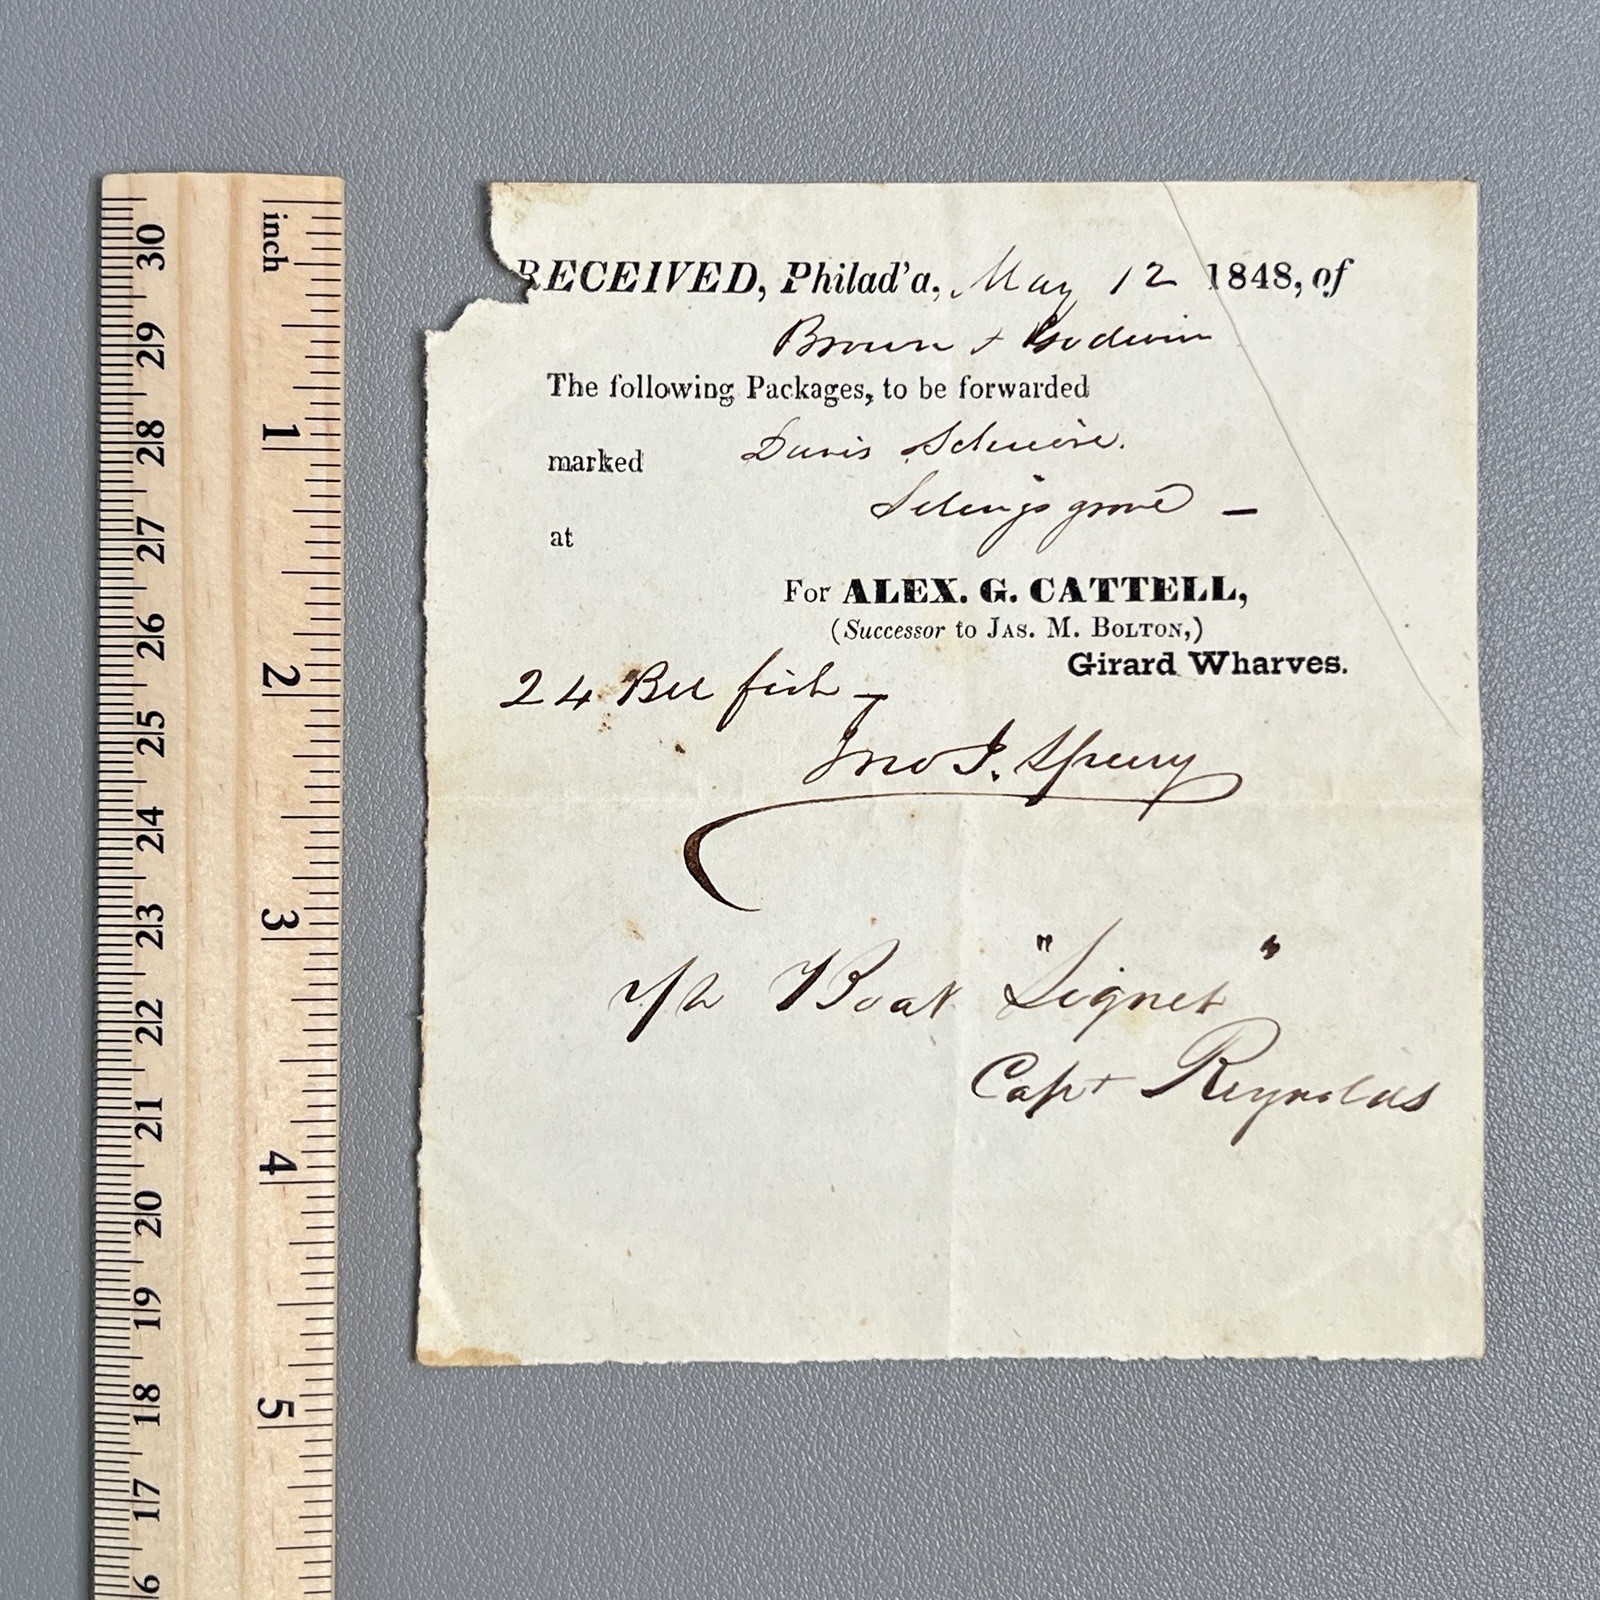 RECEIVED, Philad'a, May 12 1848, of
Brown + Godwin
The following Packages, to be forwarded
marked Davis
at Selinsgrove —
For ALEX. G. CATTELL,
(Successor to JAS. M. BOLTON,)
Girard Wharves.
24 fish —
Jno I. Sperry
Boat "Signet"
Capt Reynolds
inch
1
2
3
4
5
30
29
28
27
26
25
24
23
22
21
20
19
18
17
6